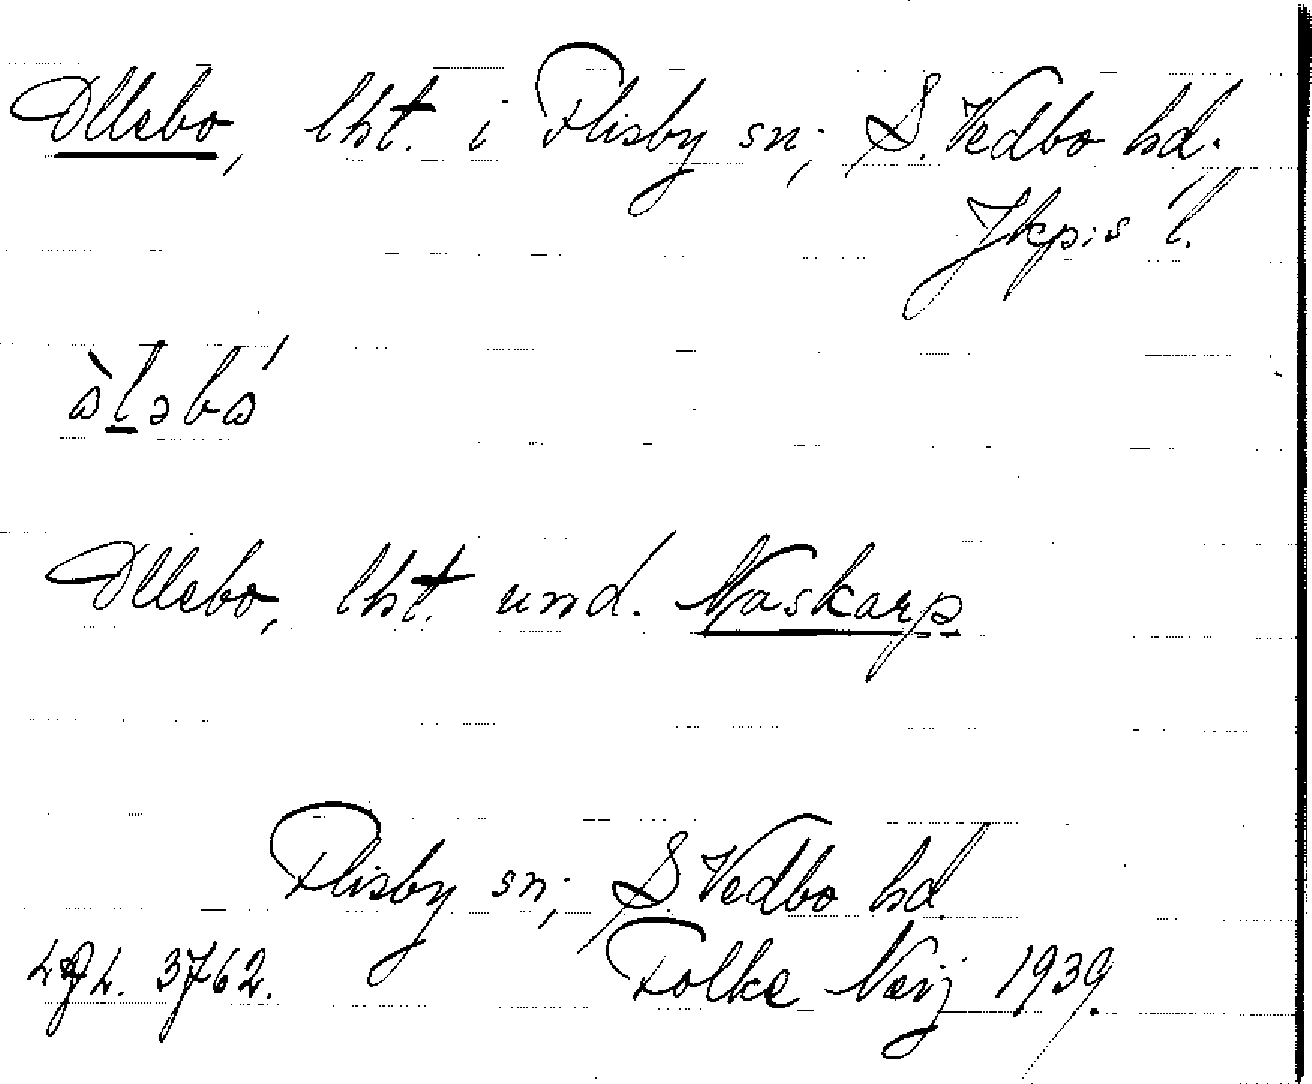 Ollebo, lht. i Flisby sn; S. Vedbo hd.
Jkp:s l.
Ollebo, lht. und. Naskarp
Flisby sn; S. Vedbo hd.
3762. Folke 1939.